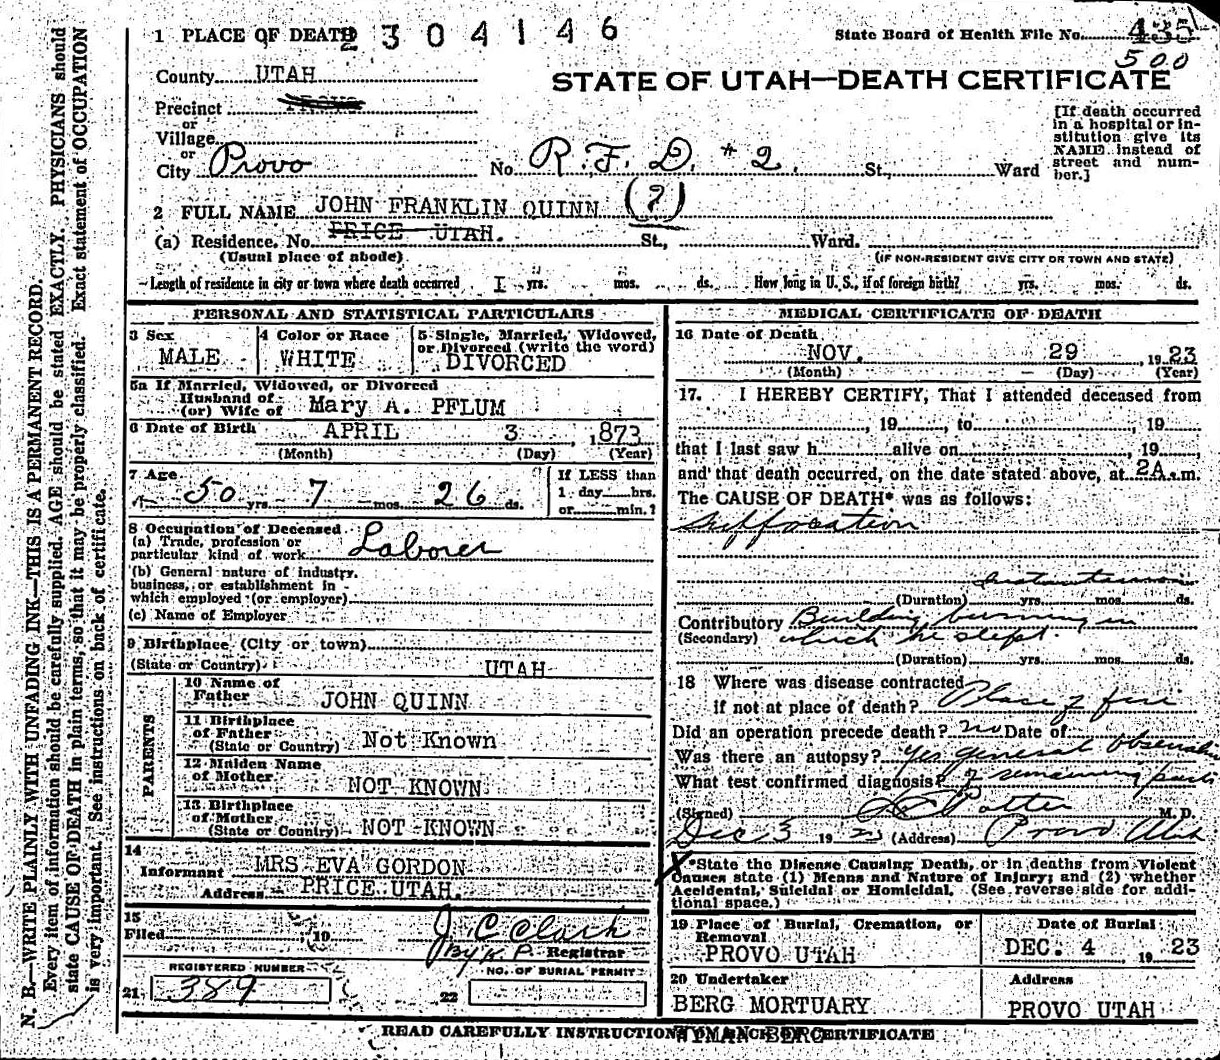 1 PLACE OF DEATH 2304146
State Board of Health File No. 435
500
County UTAH
STATE OF UTAH—DEATH CERTIFICATE
Precinct PROVO
or
Village
or
City Provo No. R.F.D. #2. St., Ward
[If death occurred
in a hospital or in-
stitution give its
NAME instead of
street and num-
ber.]
2 FULL NAME JOHN FRANKLIN QUINN (?)
(a) Residence. No. PRICE UTAH. St., Ward.
(Usual place of abode) (IF NON-RESIDENT GIVE CITY OR TOWN AND STATE)
Length of residence in city or town where death occurred I yrs. mos. ds. How long in U. S., if of foreign birth? yrs. mos. ds.
PERSONAL AND STATISTICAL PARTICULARS
3 Sex
MALE
4 Color or Race
WHITE
5 Single, Married, Widowed,
or Divorced (write the word)
DIVORCED
5a If Married, Widowed, or Divorced
Husband of
(or) Wife of Mary A. PFLUM
6 Date of Birth APRIL 3, 1873
(Month) (Day) (Year)
7 Age
50 yrs. 7 mos. 26 ds.
If LESS than
1 day hrs.
or min.?
8 Occupation of Deceased
(a) Trade, profession or
particular kind of work Laborer
(b) General nature of industry,
business, or establishment in
which employed (or employer)
(c) Name of Employer
9 Birthplace (City or town)
(State or Country) UTAH
PARENTS
10 Name of
Father JOHN QUINN
11 Birthplace
of Father
(State or Country) Not Known
12 Maiden Name
of Mother NOT KNOWN
13 Birthplace
of Mother
(State or Country) NOT KNOWN
14
Informant MRS EVA GORDON
Address PRICE UTAH.
15
Filed , 19 J. C. Clark
By K. P. Registrar
REGISTERED NUMBER
21 389
NO. OF BURIAL PERMIT
22
MEDICAL CERTIFICATE OF DEATH
16 Date of Death
NOV. 29 , 19 23
(Month) (Day) (Year)
17. I HEREBY CERTIFY, That I attended deceased from
, 19 , to , 19
that I last saw h alive on , 19
and that death occurred, on the date stated above, at 2A.m.
The CAUSE OF DEATH* was as follows:
Suffocation
Instantaneous
(Duration) yrs. mos. ds.
Contributory Building burning in
(Secondary) which he slept.
(Duration) yrs. mos. ds.
18 Where was disease contracted
if not at place of death? Place of fire
Did an operation precede death? no Date of
Was there an autopsy? Yes general observation
What test confirmed diagnosis? of remaining parts
(Signed) Potter M. D.
Dec 3 19 23 (Address) Provo Utah
*State the Disease Causing Death, or in deaths from Violent
Causes state (1) Means and Nature of Injury; and (2) whether
Accidental, Suicidal or Homicidal. (See reverse side for addi-
tional space.)
19 Place of Burial, Cremation, or
Removal
PROVO UTAH
Date of Burial
DEC. 4 19 23
20 Undertaker
BERG MORTUARY
Address
PROVO UTAH
READ CAREFULLY INSTRUCTIONS ON BACK OF CERTIFICATE
N. B.—WRITE PLAINLY WITH UNFADING INK—THIS IS A PERMANENT RECORD.
Every item of information should be carefully supplied. AGE should be stated EXACTLY. PHYSICIANS should
state CAUSE OF DEATH in plain terms, so that it may be properly classified. Exact statement of OCCUPATION
is very important. See instructions on back of certificate.